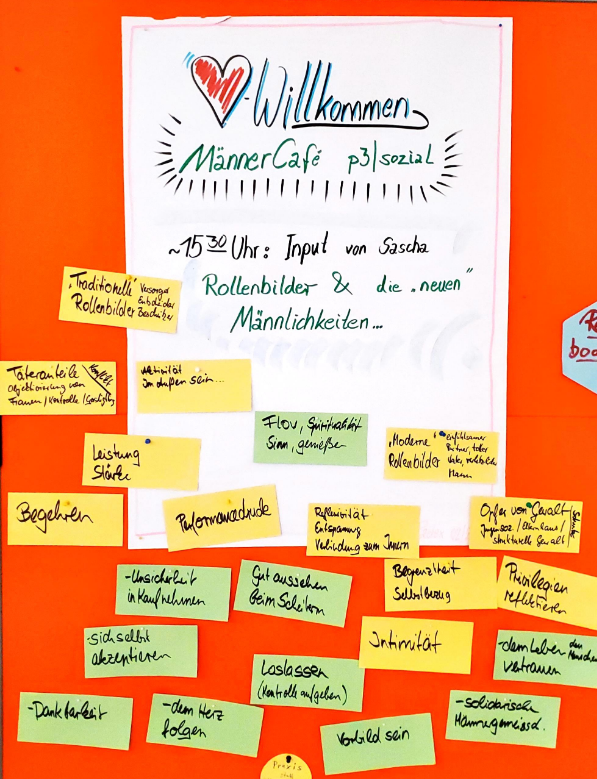 Willkommen
MännerCafé p3|sozial
~15 30 Uhr: Input von Sascha
Rollenbilder & die "neuen"
Männlichkeiten...
"Traditionelle"
Rollenbilder
Versorger
Entdecker
Beschützer
Täteranteile
Konflikt
Objektivierung von
Frauen / Kontrolle /
Aktivität
Im außen sein...
Flow, Spiritualität
Sinn, genießen
Leistung
Stärke
"Moderne"
Rollenbilder
einfühlsamer
Partner, toller
Vater,
Mann
Begehren
Performancedruck
Reflexivität
Entspannung
Verbindung zum Innern
Opfer von Gewalt
strukturelle Gewalt
-Unsicherheit
in Kauf nehmen
Gut aussehen
beim Scheitern
Begrenztheit
Selbstbezug
Privilegien
reflektieren
-sich selbst
akzeptieren
Intimität
-dem Leben den Menschen
vertrauen
Loslassen
(Kontrolle aufgeben)
-Dankbarkeit
-dem Herz
folgen
Vorbild sein
-solidarische
Praxis